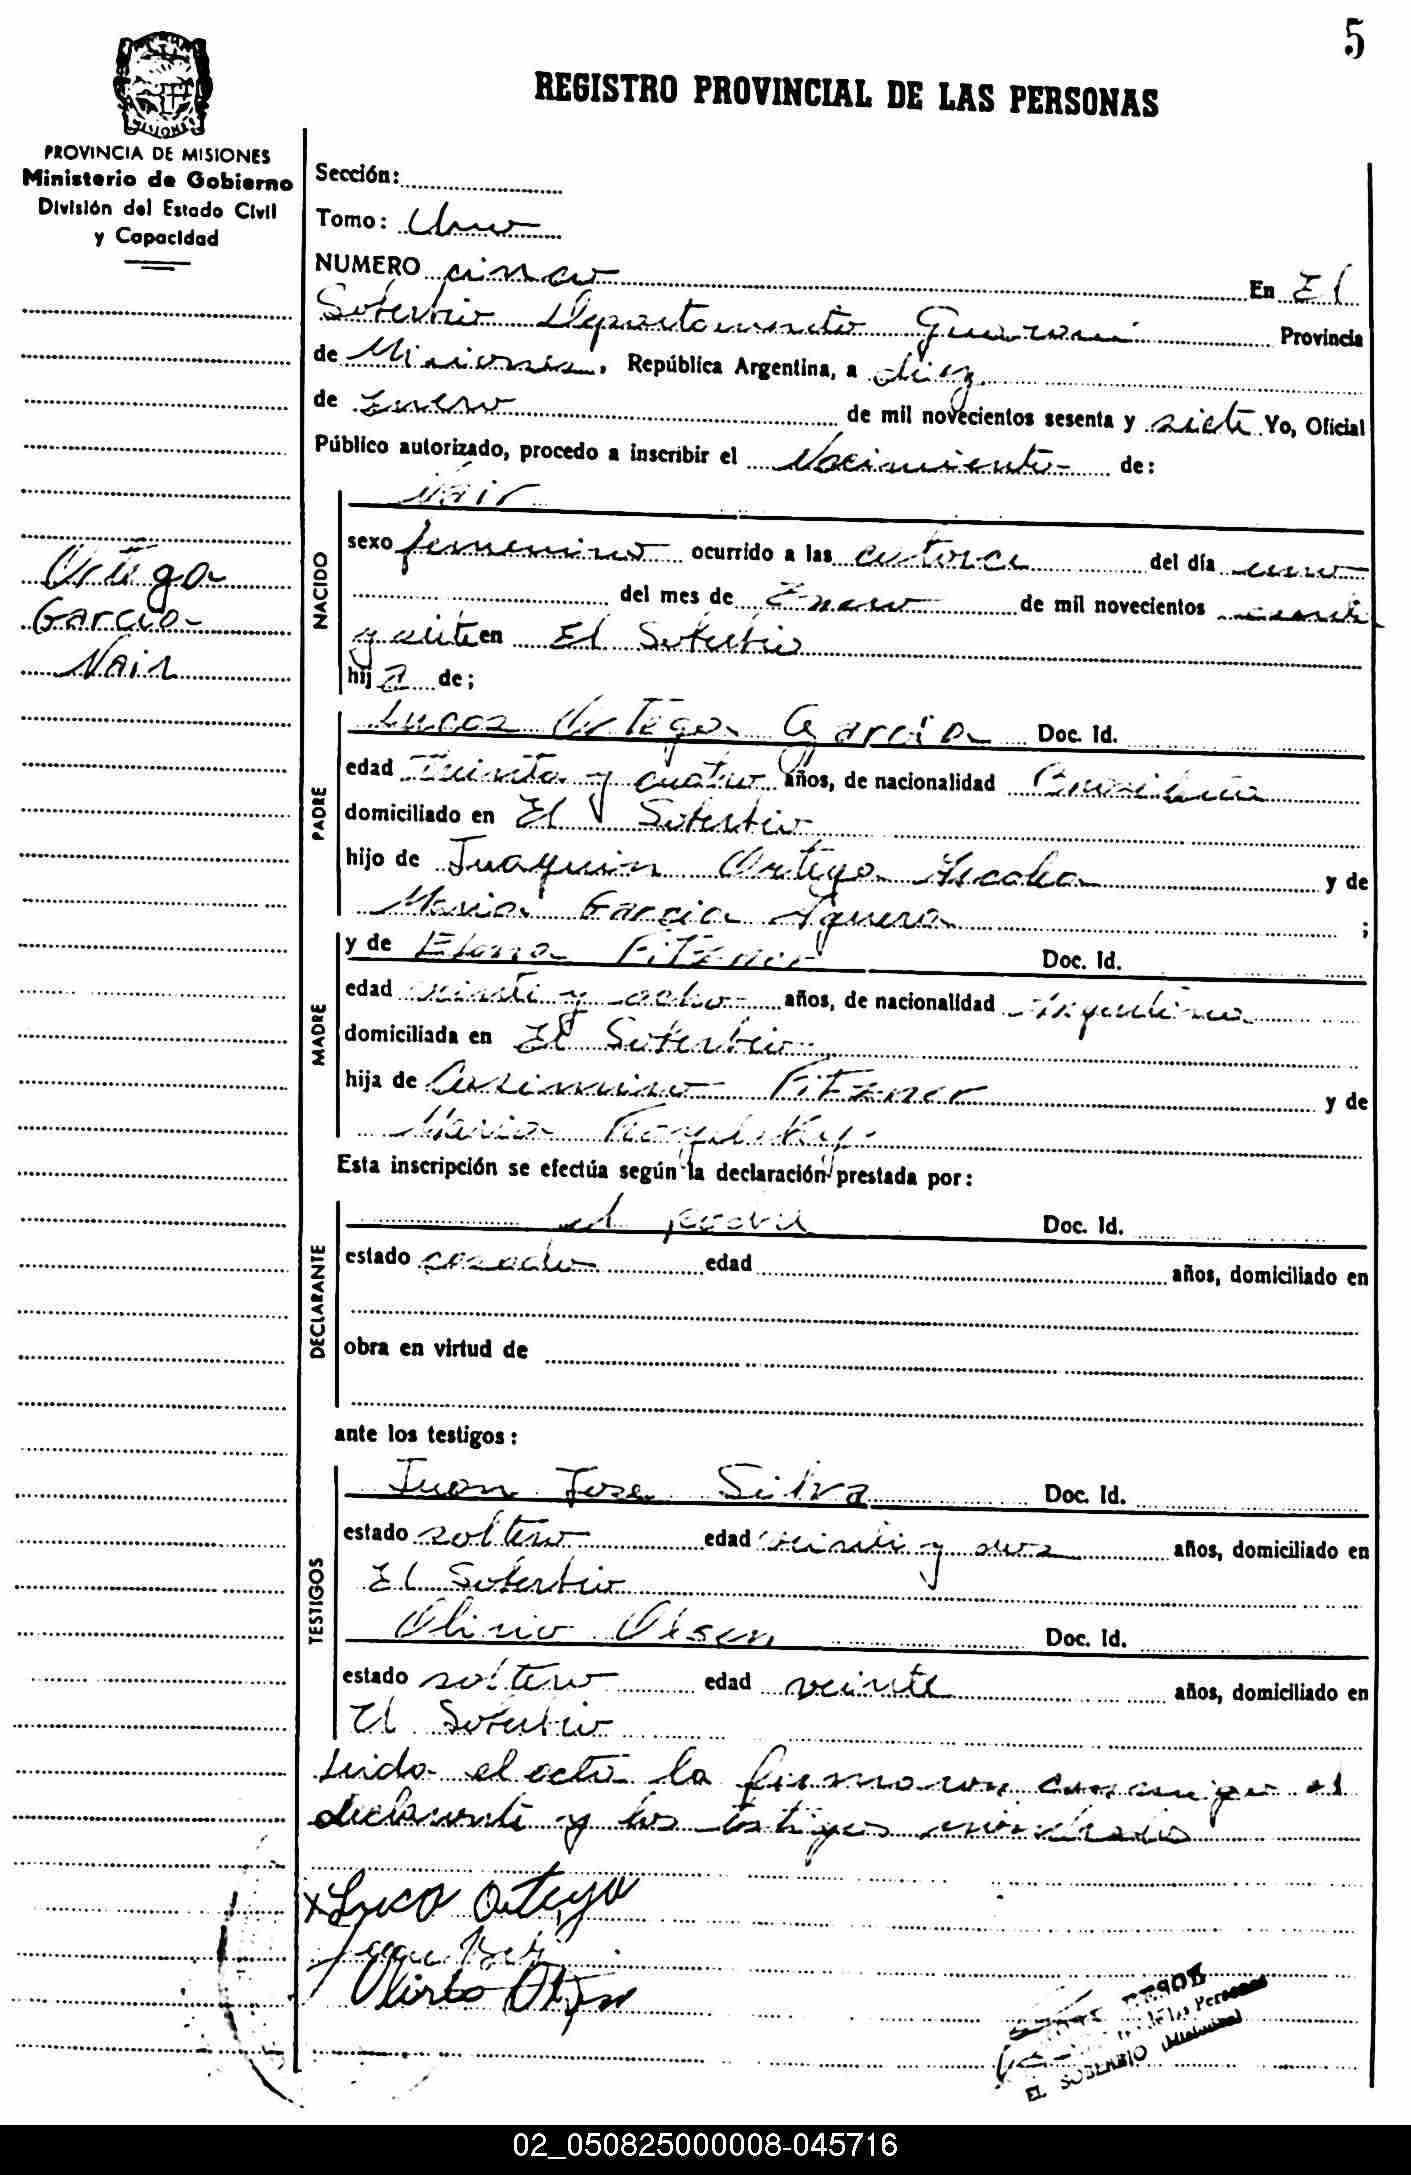 5
REGISTRO PROVINCIAL DE LAS PERSONAS
MISIONES
PROVINCIA DE MISIONES
Ministerio de Gobierno
División del Estado Civil
y Capacidad
Sección:
Tomo: Uno
NUMERO cinco En El
Soberbio Departamento Guarani Provincia
de Misiones, República Argentina, a diez
de Enero de mil novecientos sesenta y siete Yo, Oficial
Público autorizado, procedo a inscribir el Nacimiento de:
Ortega
Garcia
Nair
NACIDO
Nair
sexo femenino ocurrido a las catorce del día uno
del mes de Enero de mil novecientos
y siete en El Soberbio
hija de;
PADRE
Lucas Ortega Garcia Doc. Id.
edad Treinta y cuatro años, de nacionalidad Brasileña
domiciliado en El Soberbio
hijo de Juaquin Ortega y de
Maria Garcia Aguera ;
MADRE
y de Elena Fitzner Doc. Id.
edad veinti y ocho años, de nacionalidad Argentina
domiciliada en El Soberbio
hija de Casimiro Fitzner y de
Maria
Esta inscripción se efectúa según la declaración prestada por:
DECLARANTE
el padre Doc. Id.
estado casado edad años, domiciliado en
obra en virtud de
ante los testigos:
TESTIGOS
Juan Jose Silva Doc. Id.
estado soltero edad veinti y dos años, domiciliado en
El Soberbio
Olirio Olsen Doc. Id.
estado soltero edad veinte años, domiciliado en
El Soberbio
Leida el acta la firmaron conmigo el
declarante y los testigos
Luca Ortega
EL SOBERBIO (Misiones)
02_050825000008-045716